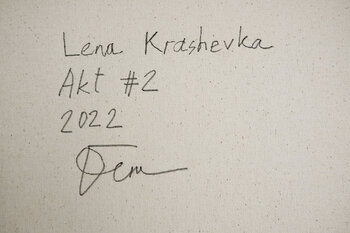 Lena Krashevka
Akt #2
2022